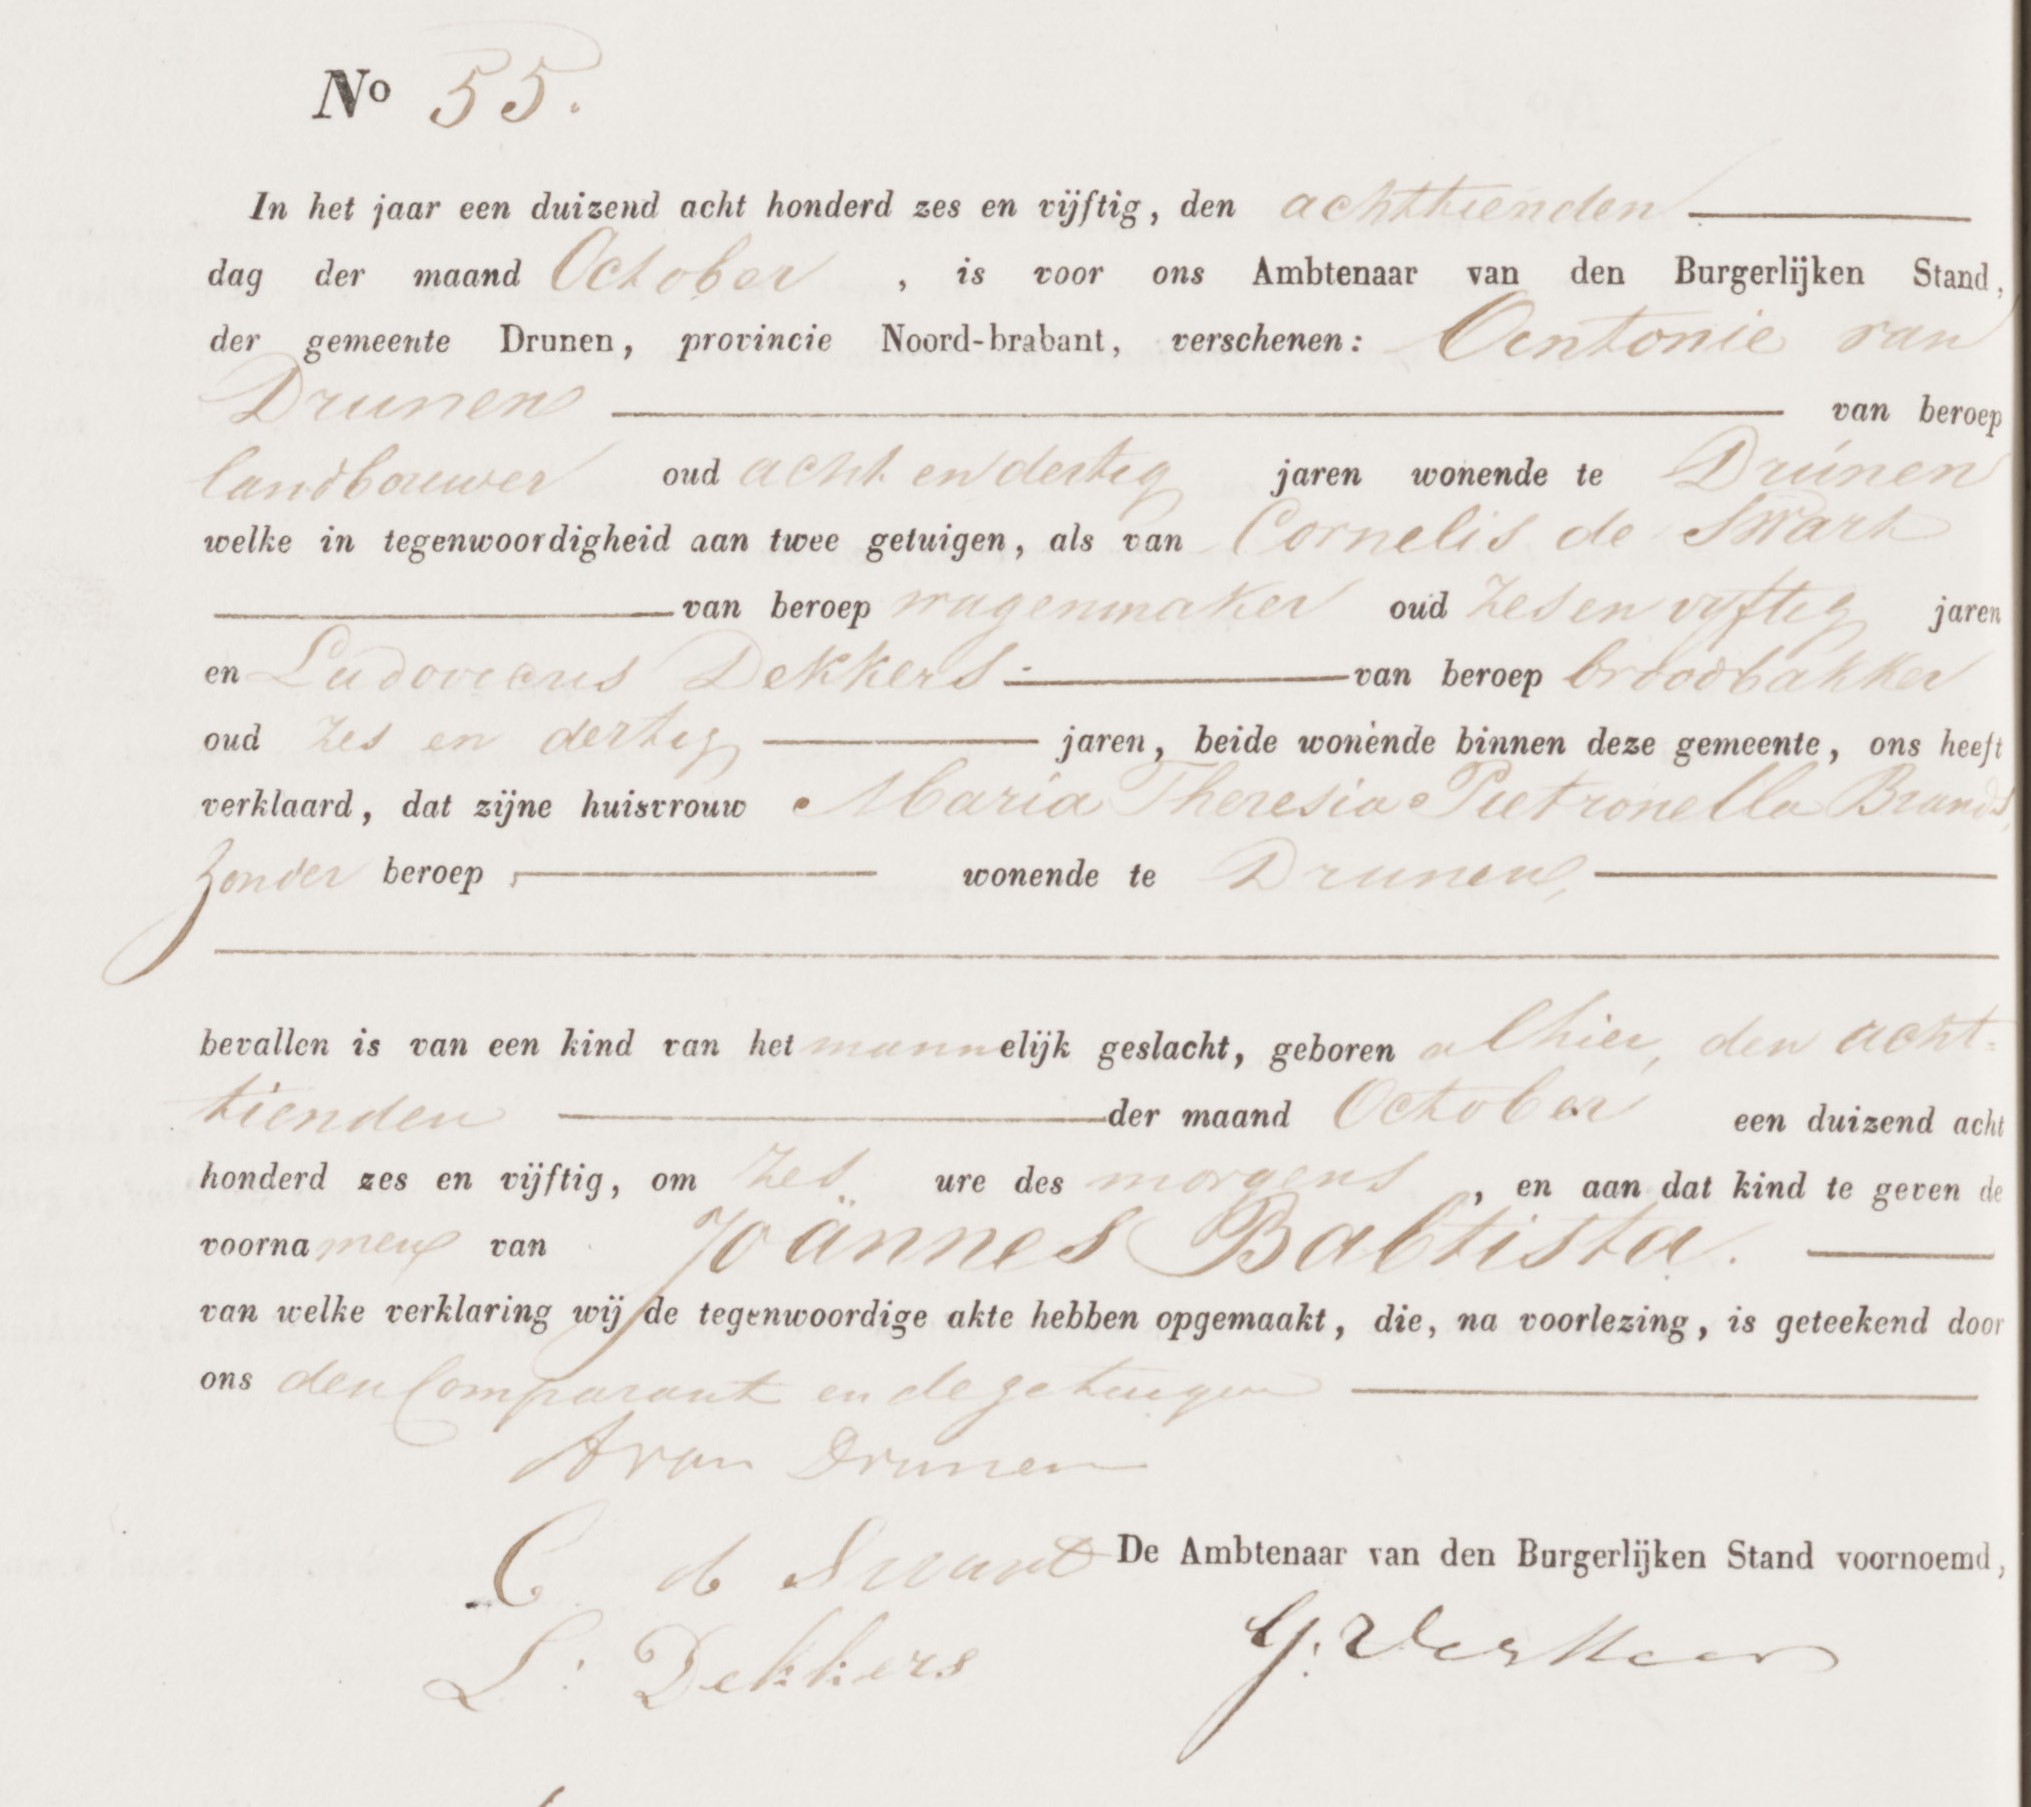 No 55.
In het jaar een duizend acht honderd zes en vijftig, den achttienden
dag der maand October , is voor ons Ambtenaar van den Burgerlijken Stand,
der gemeente Drunen, provincie Noord-brabant, verschenen: Antonie van
Drunen van beroep
landbouwer oud acht en dertig jaren wonende te Drunen
welke in tegenwoordigheid aan twee getuigen, als van Cornelis de Swart
van beroep wagenmaker oud zes en vyftig jaren
en Ludovicus Dekkers van beroep broodbakker
oud zes en dertig jaren, beide wonende binnen deze gemeente, ons heeft
verklaard, dat zijne huisvrouw Maria Theresia Pietronella Brands,
zonder beroep, wonende te Drunen,
bevallen is van een kind van het mannelijk geslacht, geboren alhier, den acht-
tienden der maand October een duizend acht
honderd zes en vijftig, om zes ure des morgens , en aan dat kind te geven de
voornamen van Joännes Babtista.
van welke verklaring wij de tegenwoordige akte hebben opgemaakt, die, na voorlezing, is geteekend door
ons den Comparant en de getuigen
A van Drunen
C d Swart De Ambtenaar van den Burgerlijken Stand voornoemd,
L: Dekkers